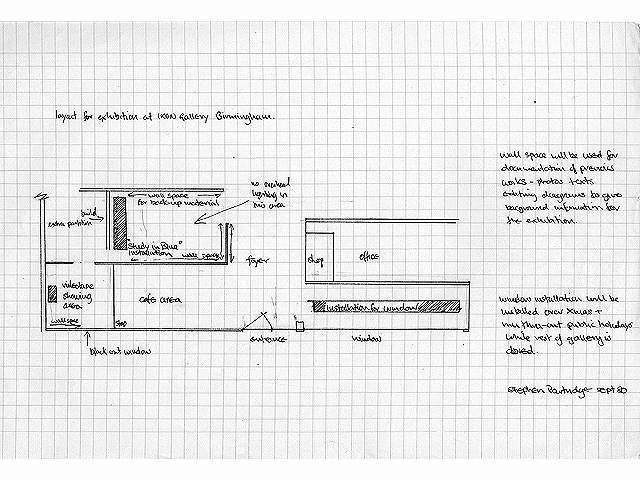 layout for exhibition at IKON Gallery Birmingham.
wall space
for back-up material
no overhead
lighting in
this area
build
extra partition
"Study in Blue"
installation
wall space
foyer
shop
office
videotape
showing
area
wall space
cafe area
step
installation for window
black out window
entrance
window
wall space will be used for
documentation of previous
works - photos texts
existing diagrams to give
background information for
the exhibition.
window installation will be
installed over Xmas +
public holidays
while rest of gallery is
closed.
Stephen Partridge sept 80